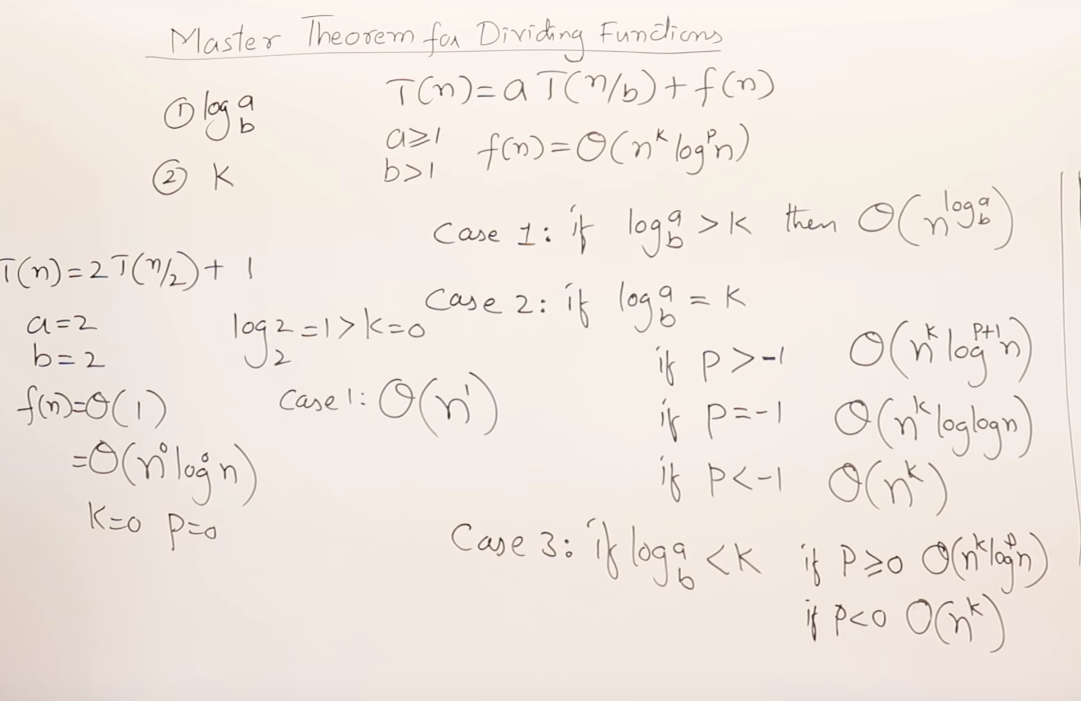 Master Theorem for Dividing Functions
① log_b a
② K
T(n) = a T(n/b) + f(n)
a ≥ 1
b > 1
f(n) = Θ(n^k log^p n)
Case 1: if log_b a > K then Θ(n^(log_b a))
Case 2: if log_b a = K
if P > -1 Θ(n^k log^(P+1) n)
if P = -1 Θ(n^k loglogn)
if P < -1 Θ(n^k)
Case 3: if log_b a < K if P ≥ 0 Θ(n^k log^p n)
if P < 0 Θ(n^k)
T(n) = 2T(n/2) + 1
a = 2
b = 2
f(n) = Θ(1)
= Θ(n^0 log^0 n)
K=0 P=0
log_2 2 = 1 > k = 0
Case 1: Θ(n^1)